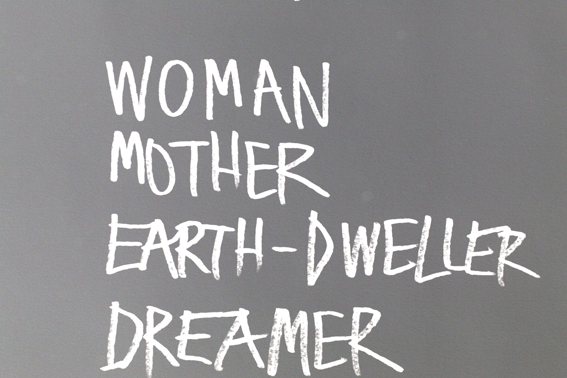 WOMAN
MOTHER
EARTH-DWELLER
DREAMER